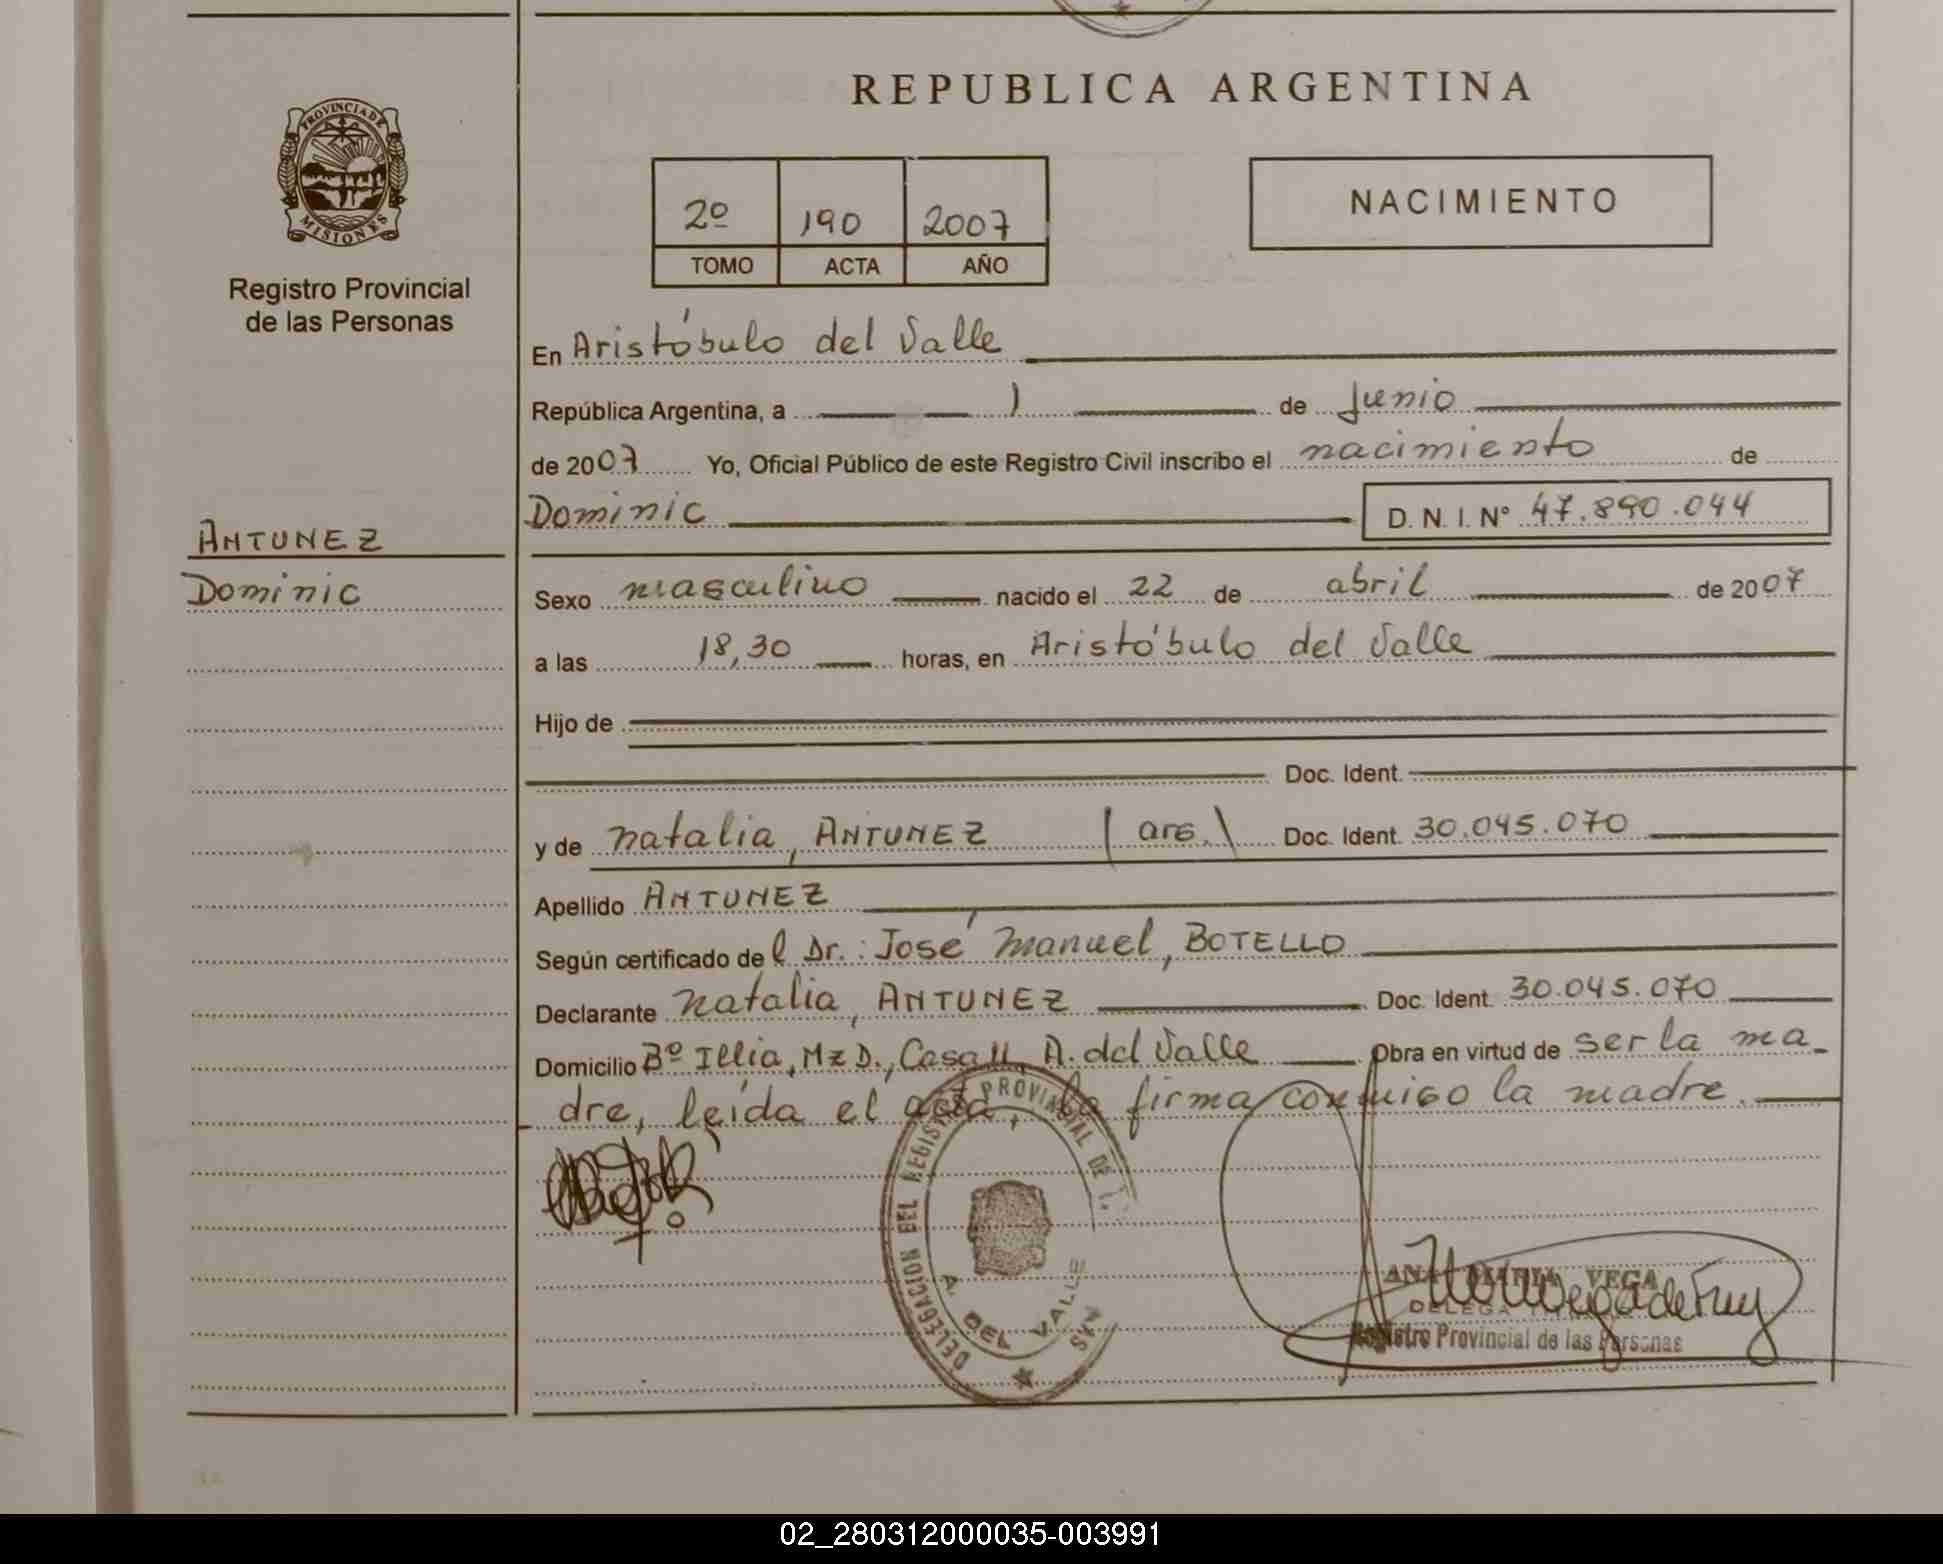 REPUBLICA ARGENTINA
PROVINCIA DE MISIONES
Registro Provincial
de las Personas
2º 190 2007
TOMO ACTA AÑO
NACIMIENTO
En Aristóbulo del Valle
República Argentina, a 1 de Junio
de 2007 Yo, Oficial Público de este Registro Civil inscribo el nacimiento de
Dominic D. N. I. Nº 47.890.044
ANTUNEZ
Dominic
Sexo masculino nacido el 22 de abril de 2007
a las 18,30 horas, en Aristóbulo del Valle
Hijo de
Doc. Ident.
y de Natalia, ANTUNEZ (arg.) Doc. Ident. 30.045.070
Apellido ANTUNEZ
Según certificado del Dr.: José Manuel, BOTELLO
Declarante Natalia, ANTUNEZ Doc. Ident. 30.045.070
Domicilio Bº Illia, Mz D., Casa 11, A. del Valle Obra en virtud de ser la ma-
dre, leída el acta la firma conmigo la madre.
DELEGACION DEL REGISTRO PROVINCIAL DE
A. DEL VALLE
ANA MARIA VEGA
DELEGA
Registro Provincial de las Personas
02_280312000035-003991